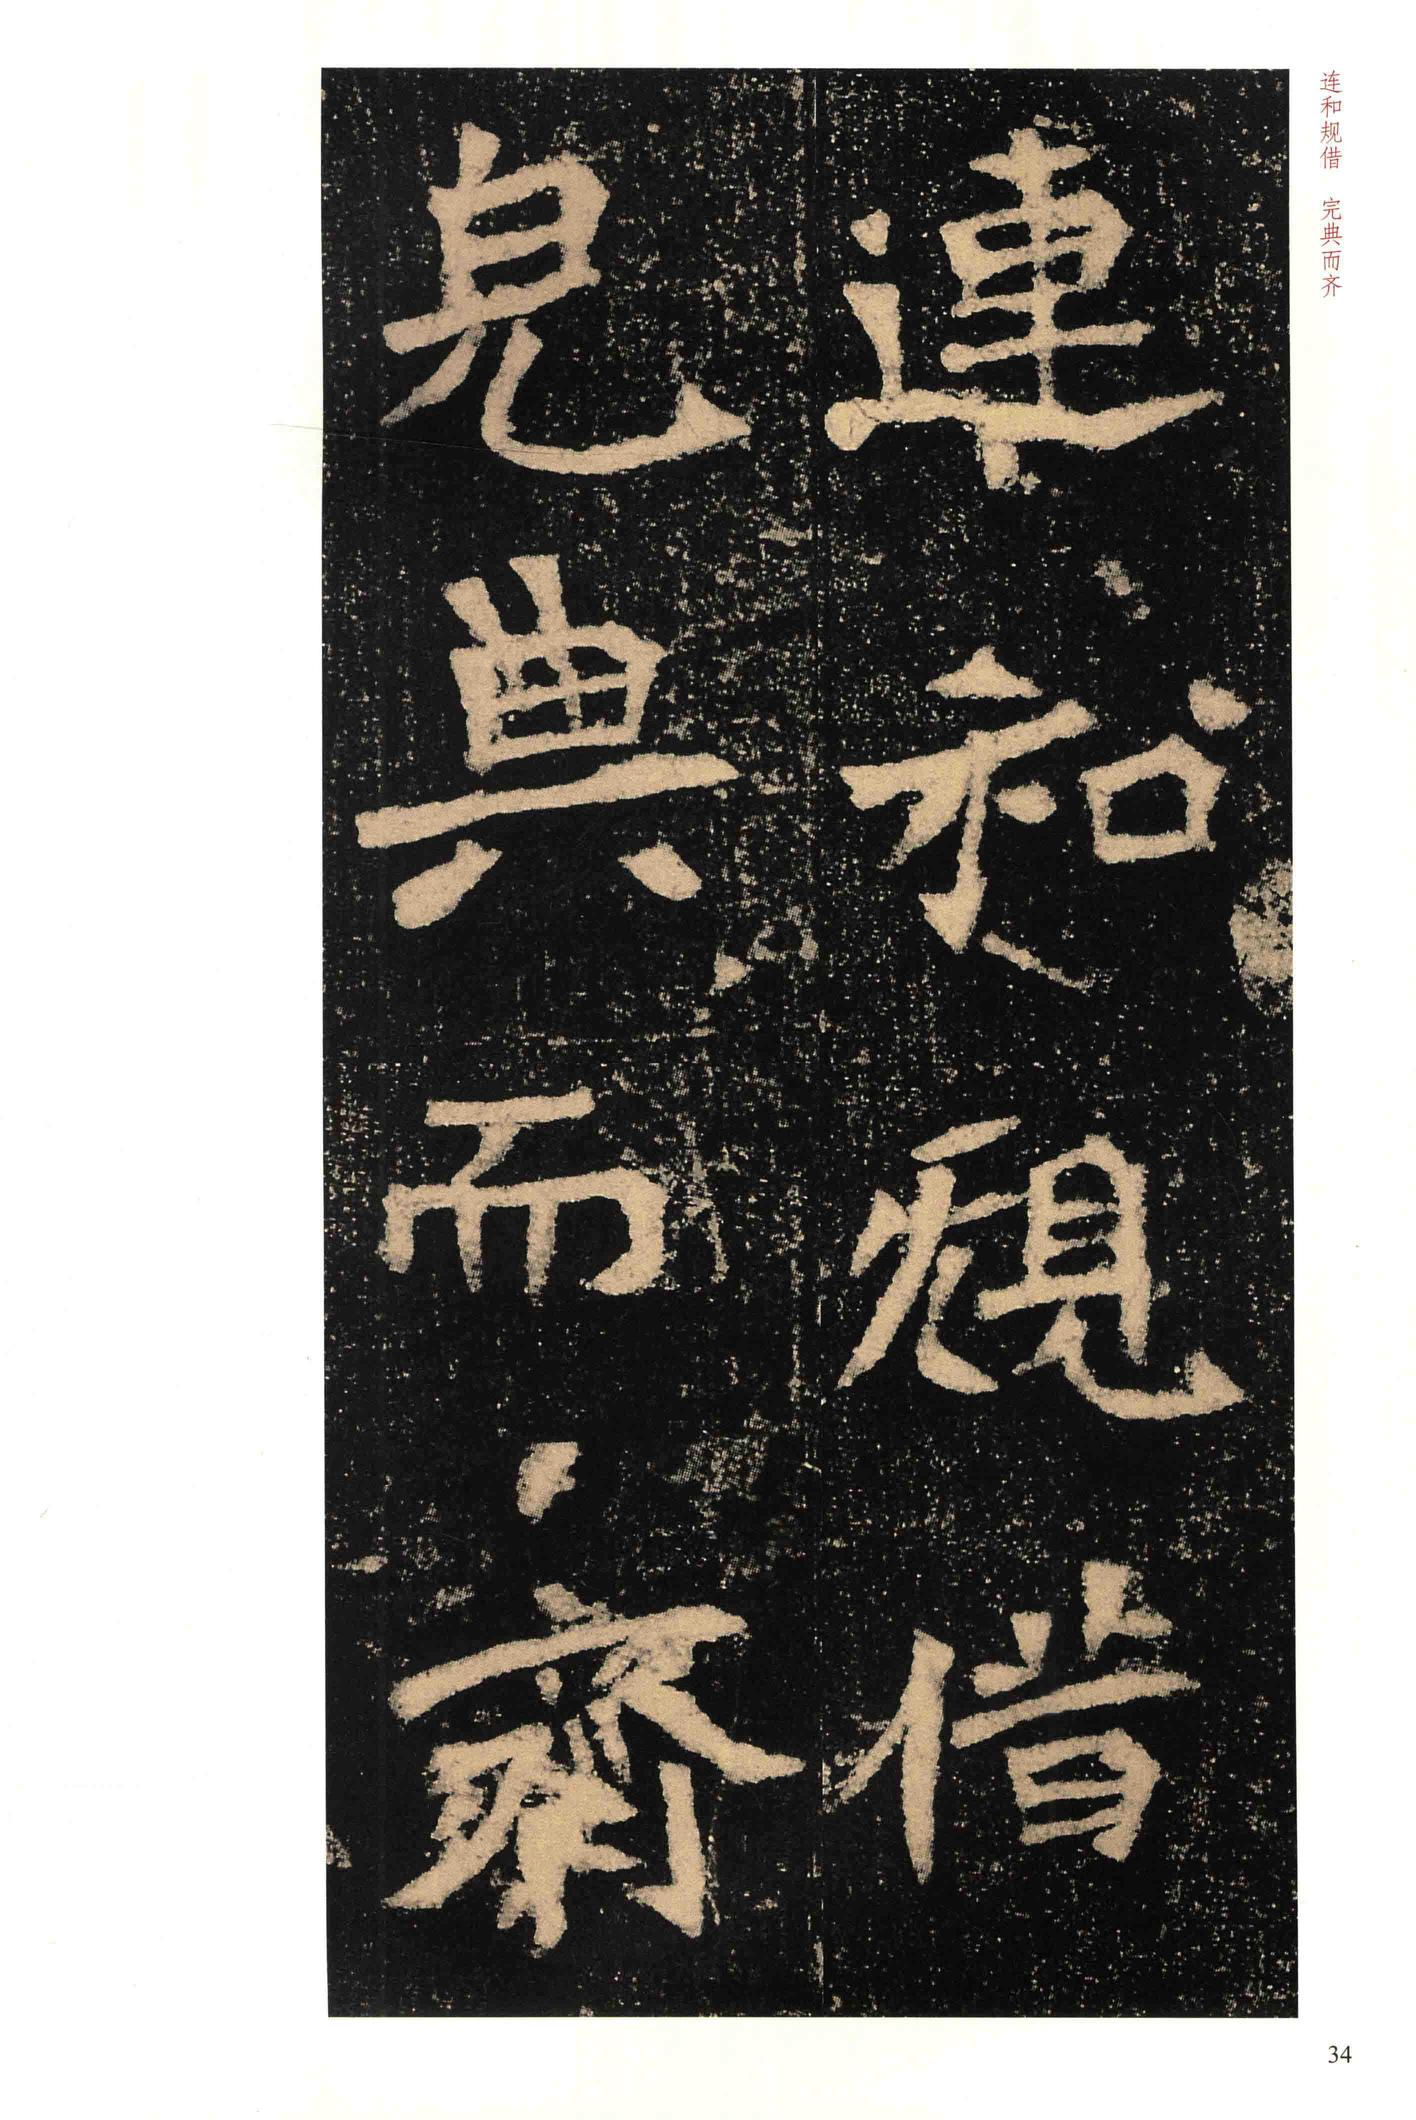 连和规借 完典而齐
連和規借
皃典而齊
34